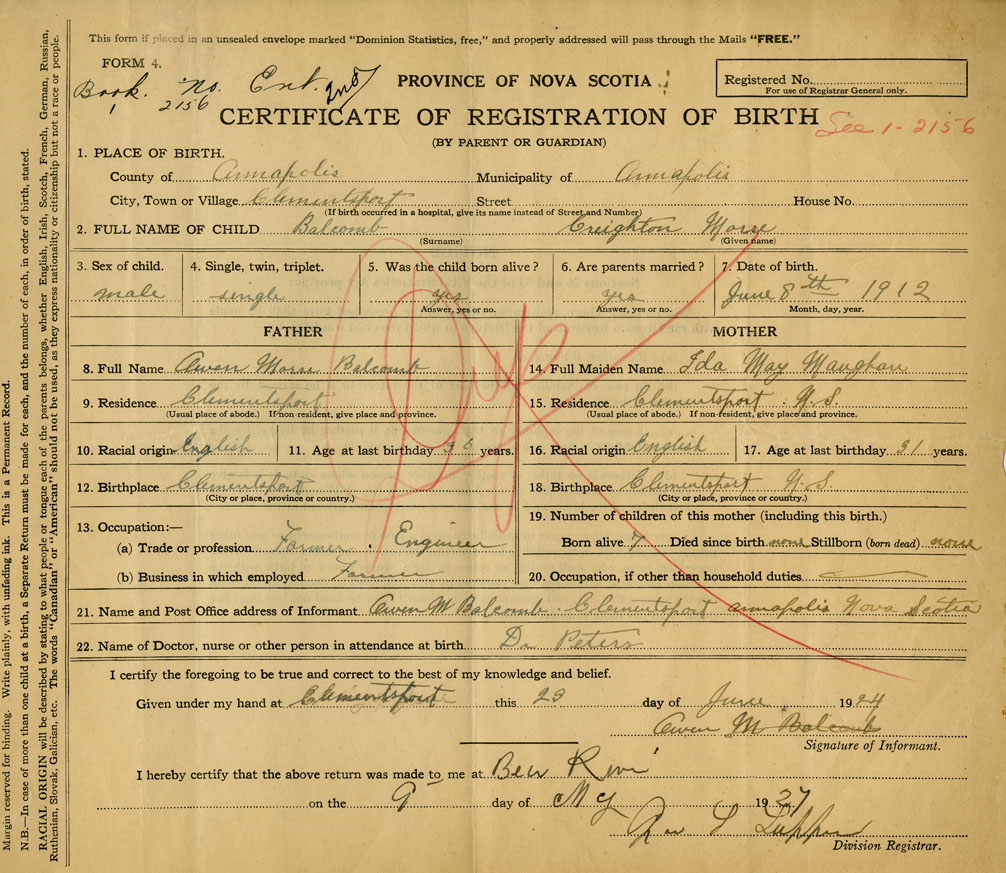 This form if placed in an unsealed envelope marked "Dominion Statistics, free," and properly addressed will pass through the Mails "FREE."
FORM 4.
Book. No. Ent.
1 2156
PROVINCE OF NOVA SCOTIA
Registered No.
For use of Registrar General only.
CERTIFICATE OF REGISTRATION OF BIRTH
See 1-2156
(BY PARENT OR GUARDIAN)
1. PLACE OF BIRTH.
County of Annapolis Municipality of Annapolis
City, Town or Village Clementsport Street House No.
(If birth occurred in a hospital, give its name instead of Street and Number)
2. FULL NAME OF CHILD Balcomb Creighton Morse
(Surname) (Given name)
3. Sex of child. 4. Single, twin, triplet. 5. Was the child born alive? 6. Are parents married? 7. Date of birth.
male single yes yes June 8th 1912
Answer, yes or no. Answer, yes or no. Month, day, year.
Dup
FATHER MOTHER
8. Full Name Owen Morse Balcomb 14. Full Maiden Name Ida May Maughan
9. Residence Clementsport 15. Residence Clementsport N.S.
(Usual place of abode.) If non-resident, give place and province. (Usual place of abode.) If non-resident, give place and province.
10. Racial origin English 11. Age at last birthday 36 years. 16. Racial origin English 17. Age at last birthday 31 years.
12. Birthplace Clementsport 18. Birthplace Clementsport N.S.
(City or place, province or country.) (City or place, province or country.)
13. Occupation:— 19. Number of children of this mother (including this birth.)
(a) Trade or profession Farmer. Engineer Born alive 7 Died since birth none Stillborn (born dead) none
(b) Business in which employed Farmer 20. Occupation, if other than household duties
21. Name and Post Office address of Informant Owen M Balcomb Clementsport annapolis Nova Scotia
22. Name of Doctor, nurse or other person in attendance at birth Dr Peters
I certify the foregoing to be true and correct to the best of my knowledge and belief.
Given under my hand at Clementsport this 23 day of June 1924
Owen M Balcomb
Signature of Informant.
I hereby certify that the above return was made to me at Bear River
on the 9 day of My 1927
Division Registrar.
Margin reserved for binding. Write plainly, with unfading ink. This is a Permanent Record.
N.B.—In case of more than one child at a birth, a Separate Return must be made for each, and the number of each, in order of birth, stated.
RACIAL ORIGIN will be described by stating to what people or tongue each of the parents belongs, whether English, Irish, Scotch, French, German, Russian,
Ruthenian, Slovak, Galician, etc. The words "Canadian" or "American" should not be used, as they express nationality or citizenship but not a race or people.